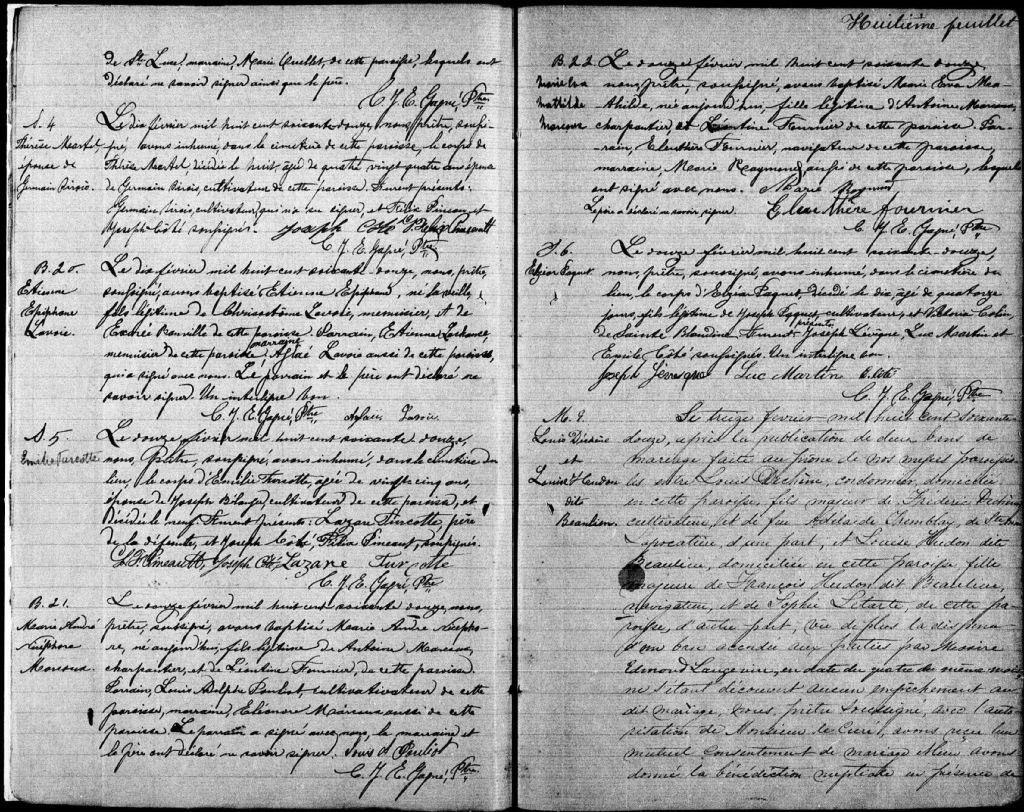 de St. Luce, marraine, Marie Ouellet, de cette paroisse, lesquels ont
déclaré ne savoir signer ainsi que le père.
C. J. E. Gagné, Ptre
S. 4
Thérèse Martel,
épouse de
Germain Sirois.
Le dix février mil huit cent soixante-douze, nous, prêtre, soussi-
gné, avons inhumé, dans le cimetière de cette paroisse, le corps de
Thérèse Martel, décédée le huit, âgée de quatre vingt quatre ans épouse
de Germain Sirois, cultivateur de cette paroisse. Furent présents:
Germain Sirois, cultivateur, qui n'a su signer, et Félix Pineau et
Joseph Coté soussignés. Joseph Coté
C. J. E. Gagné, Ptre
B. 20.
Etienne
Epiphane
Lavoie.
Le dix février mil huit cent soixante-douze, nous, prêtre,
soussigné, avons baptisé Etienne Epiphane, né la veille,
fils légitime de Chrisostôme Lavoie, menuisier, et de
Banville de cette paroisse. Parrain, Etienne
menuisier de cette paroisse, marraine, Aglaé Lavoie aussi de cette paroisse,
qui a signé avec nous. Le parrain et le père ont déclaré ne
savoir signer. Un interligne bon.
C. J. E. Gagné, Ptre Lavoie
S. 5.
Emilie Turcotte
Le douze février mil huit cent soixante douze,
nous, Prêtre, soussigné, avons inhumé, dans le cimetière du
lieu, le corps d'Emilie Turcotte, âgée de vingt cinq ans,
épouse de Joseph cultivateur de cette paroisse, et
décédée le neuf. Furent présents: Lazare Turcotte, père
de la défunte, et Joseph Coté, Pineault, soussignés.
Pineault, Joseph Coté Lazare Turcotte
C. J. E. Gagné, Ptre
B. 21.
Marie André
Nicéphore
Marceau.
Le douze février mil huit cent soixante douze, nous,
prêtre, soussigné, avons baptisé Marie André Nicépho-
re, né aujourd'hui, fils légitime de Antoine Marceau,
charpentier, et de Léontine Fournier, de cette paroisse.
Parrain, Louis Adolphe Pouliot, cultivativateur de cette
paroisse, marraine, Eléonore Marceau aussi de cette
paroisse. Le parrain a signé avec nous, la marraine et
le père ont déclaré ne savoir signer. Louis A Pouliot
C. J. E. Gagné, Ptre
Huitième feuillet
B. 22.
Marie Eva
Mathilde
Marceau
Le douze février mil huit cent soixante douze,
nous, prêtre, soussigné, avons baptisé Marie Eva Ma-
thilde, née aujourd'hui, fille légitime d'Antoine Marceau,
charpentier, et Léontine Fournier de cette paroisse. Par-
rain, Eleuthère Fournier, navigateur de cette paroisse,
marraine, Marie aussi de cette paroisse, lesquels
ont signé avec nous. Marie
Le père a déclaré ne savoir signer. Eleuthère fournier
C. J. E. Gagné, Ptre
S. 6.
Elzéar Paquet
Le douze février mil huit cent soixante-douze,
nous, prêtre, soussigné, avons inhumé, dans le cimetière du
lieu, le corps d'Elzéar Paquet, décédé le dix, âgé de quatorze
jours, fils légitime de Joseph Paquet, cultivateur, et Victoria
de Sainte Blandine. Furent présents Joseph Lévêque, Luc Martin et
Emile Coté soussignés. Un interligne bon.
Joseph Luc Martin E. Coté
C. J. E. Gagné, Ptre
M. 2.
Louis Dechêne
et
Louise Hudon
dit
Beaulieu.
Le treize février mil huit cent soixante
douze, après la publication de deux bans de
mariage faite au prône de nos messes paroissia-
les entre Louis Dechêne, cordonnier, domicilié
en cette paroisse, fils majeur de Frédéric Dechêne
cultivateur, et de feu Adelaide Tremblay, de Ste Anne
Lapocatière, d'une part, et Louise Hudon dite
Beaulieu, domiciliée en cette paroisse fille
majeure de François Hudon dit Beaulieu,
navigateur, et de Sophie Letarte, de cette pa-
roisse, d'autre part, vu de plus la dispense
d'un ban accordée aux parties par Messire
Edmond Langevin, en date du quatre du même mois
ne s'étant découvert aucun empêchement au
dit mariage, nous, prêtre soussigné, avec l'auto-
risation de Monsieur le Curé, avons reçu leur
mutuel consentement de mariage et leur avons
donné la bénédiction nuptiale en présence de